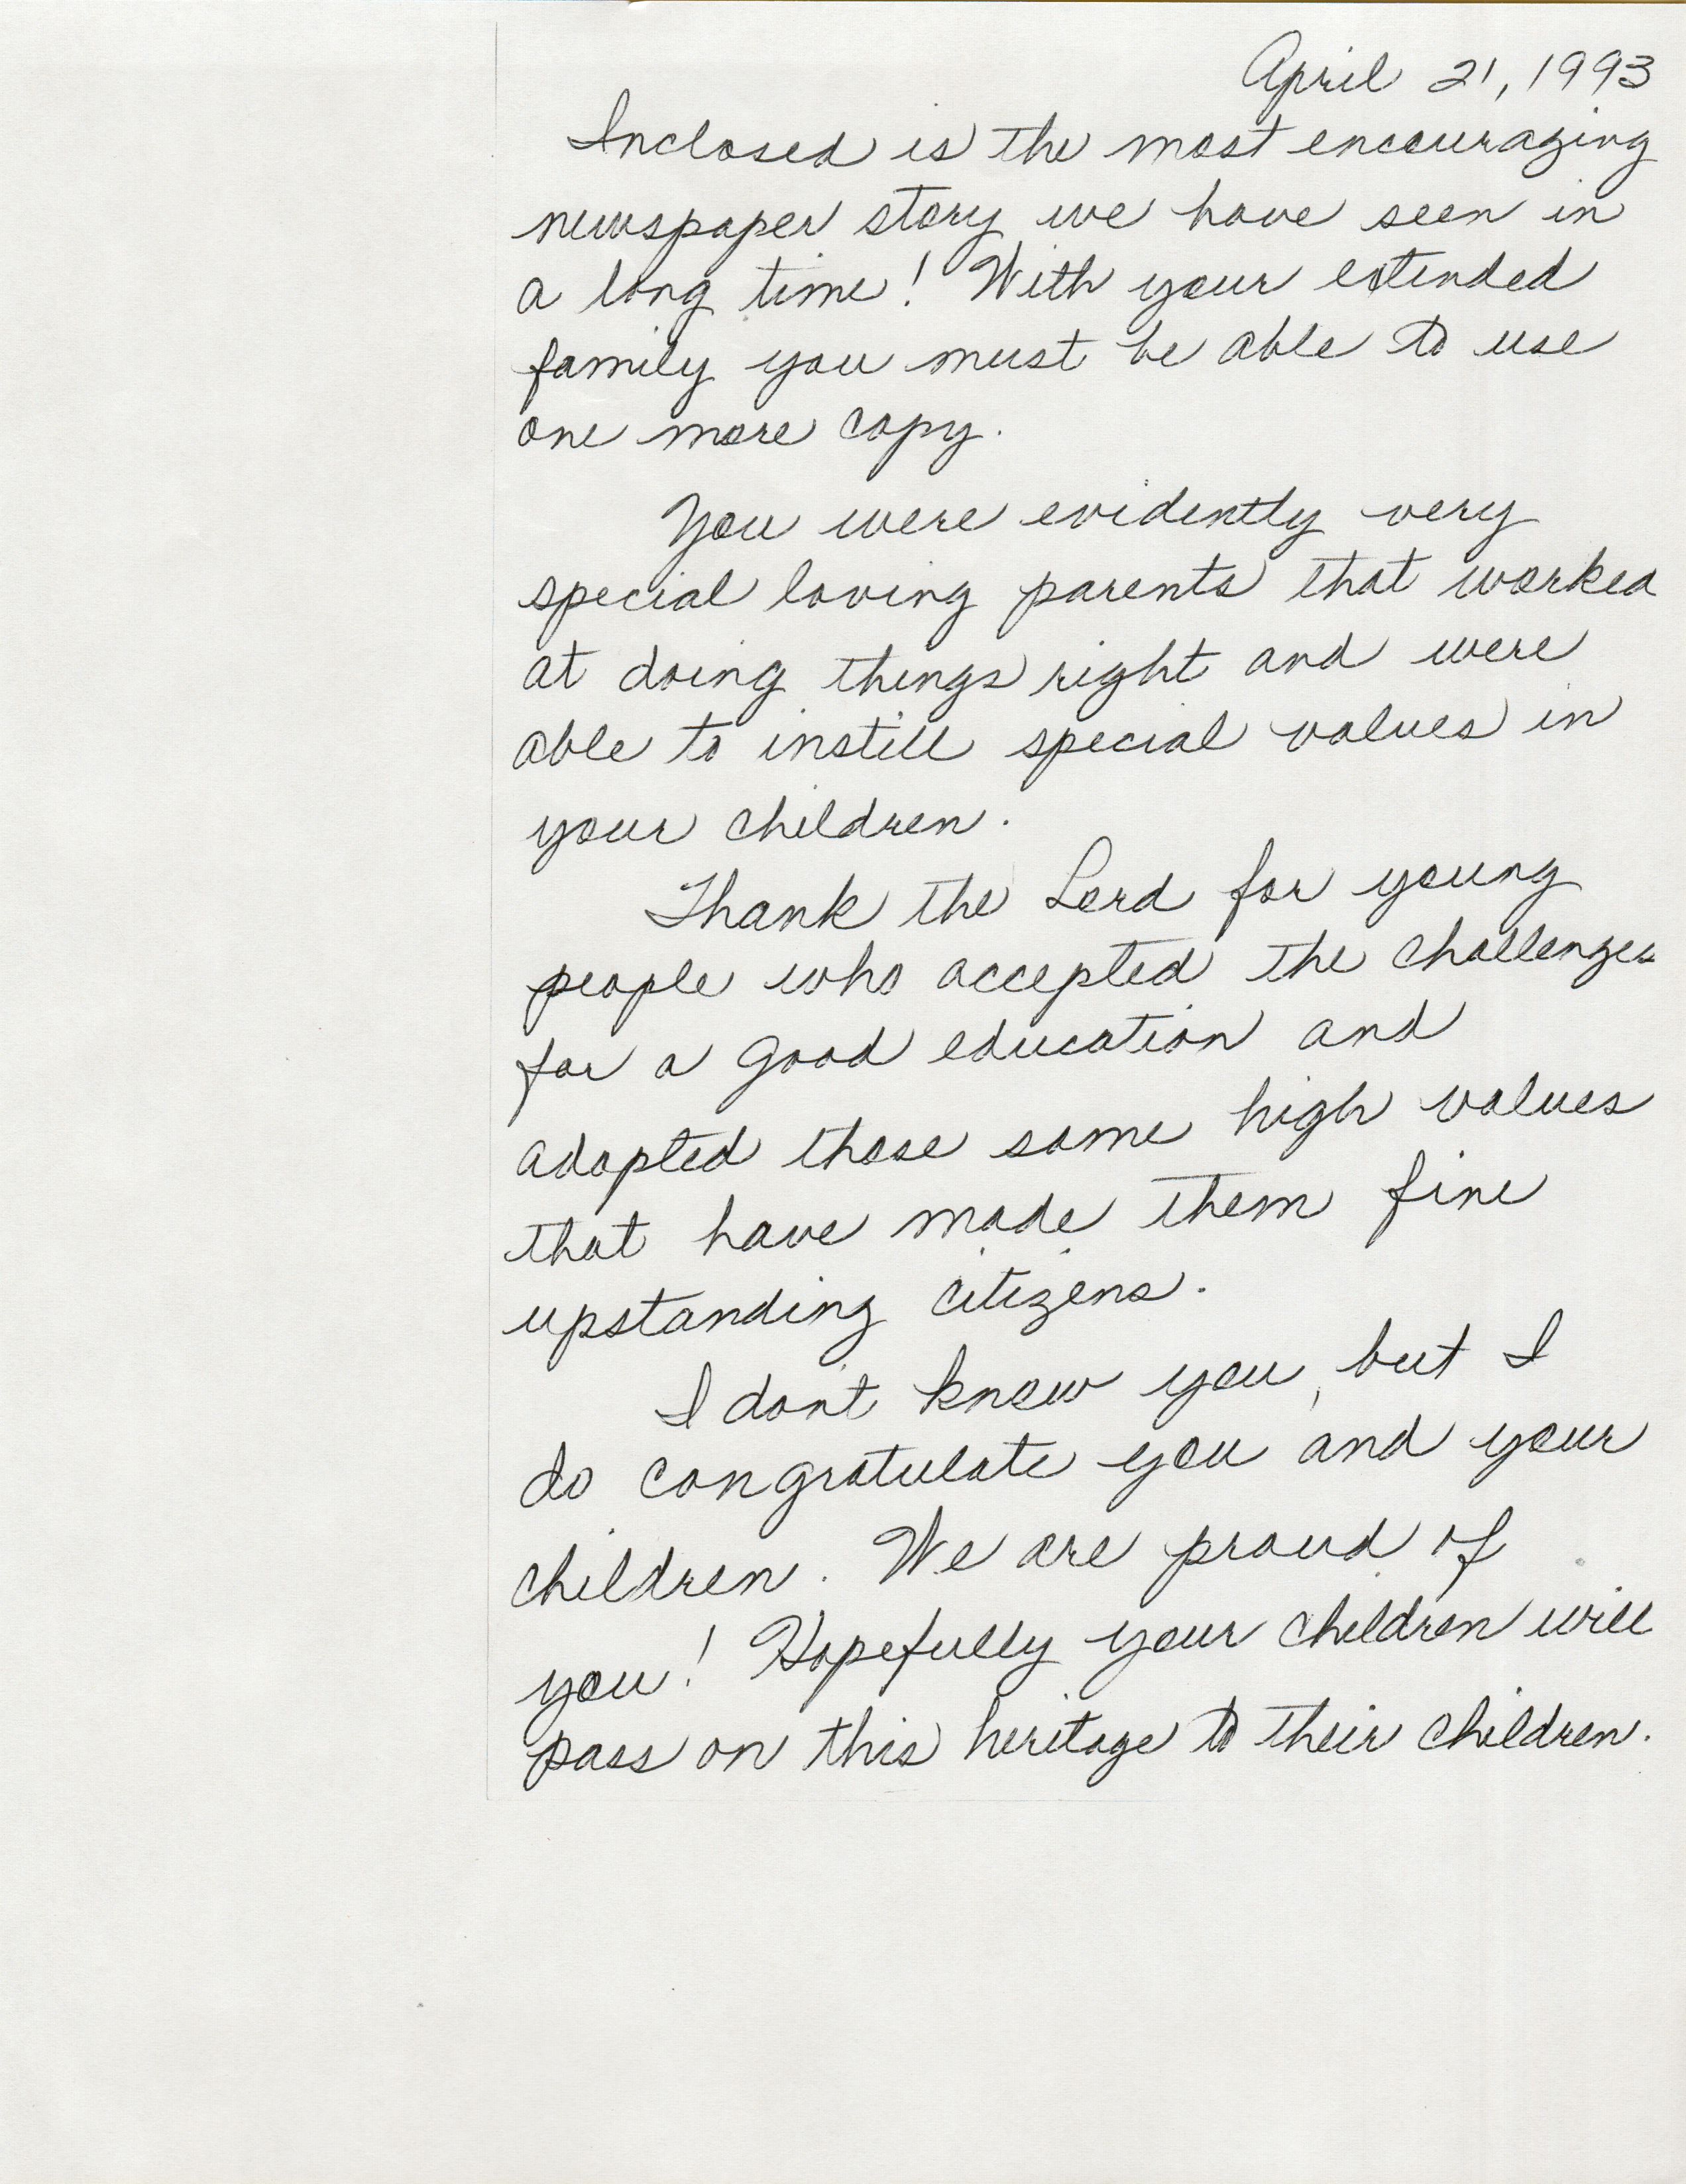 April 21, 1993
Inclosed is the most encouraging
newspaper story we have seen in
a long time! With your extended
family you must be able to use
one more copy.
You were evidently very
special loving parents that worked
at doing things right and were
able to instill special values in
your children.
Thank the Lord for young
people who accepted the challenges
for a good education and
adopted those same high values
that have made them fine
upstanding citizens.
I don't know you, but I
do congratulate you and your
children. We are proud of
you! Hopefully your children will
pass on this heritage to their children.